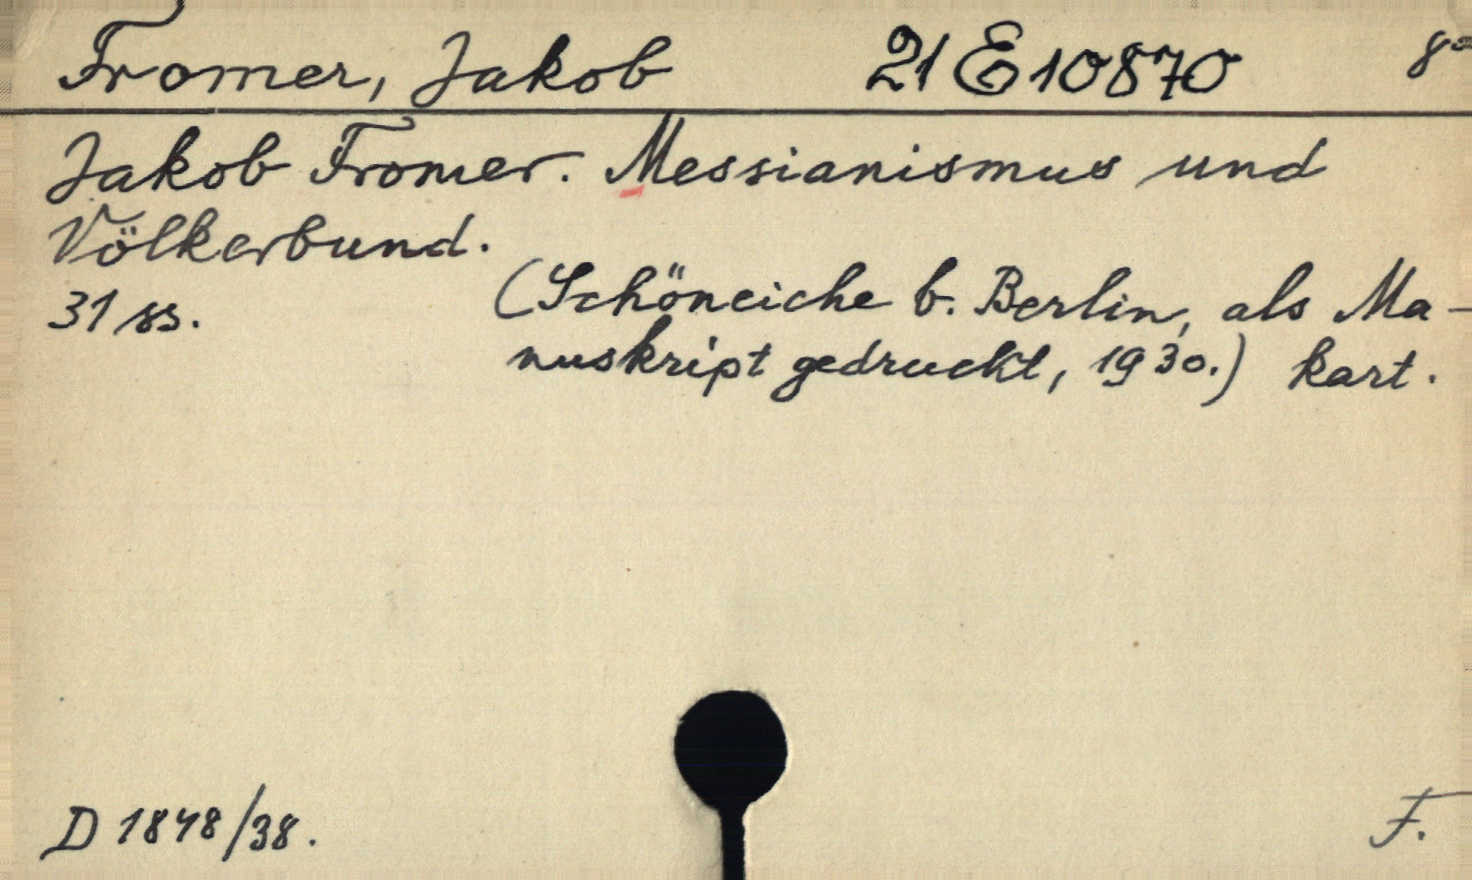 Fromer, Jakob 21 E 10870 8°
Jakob Fromer. Messianismus und
Völkerbund.
31 ss. (Schöneiche b. Berlin, als Ma-
nuskript gedruckt, 1930.) kart.
D 1848/38. F.